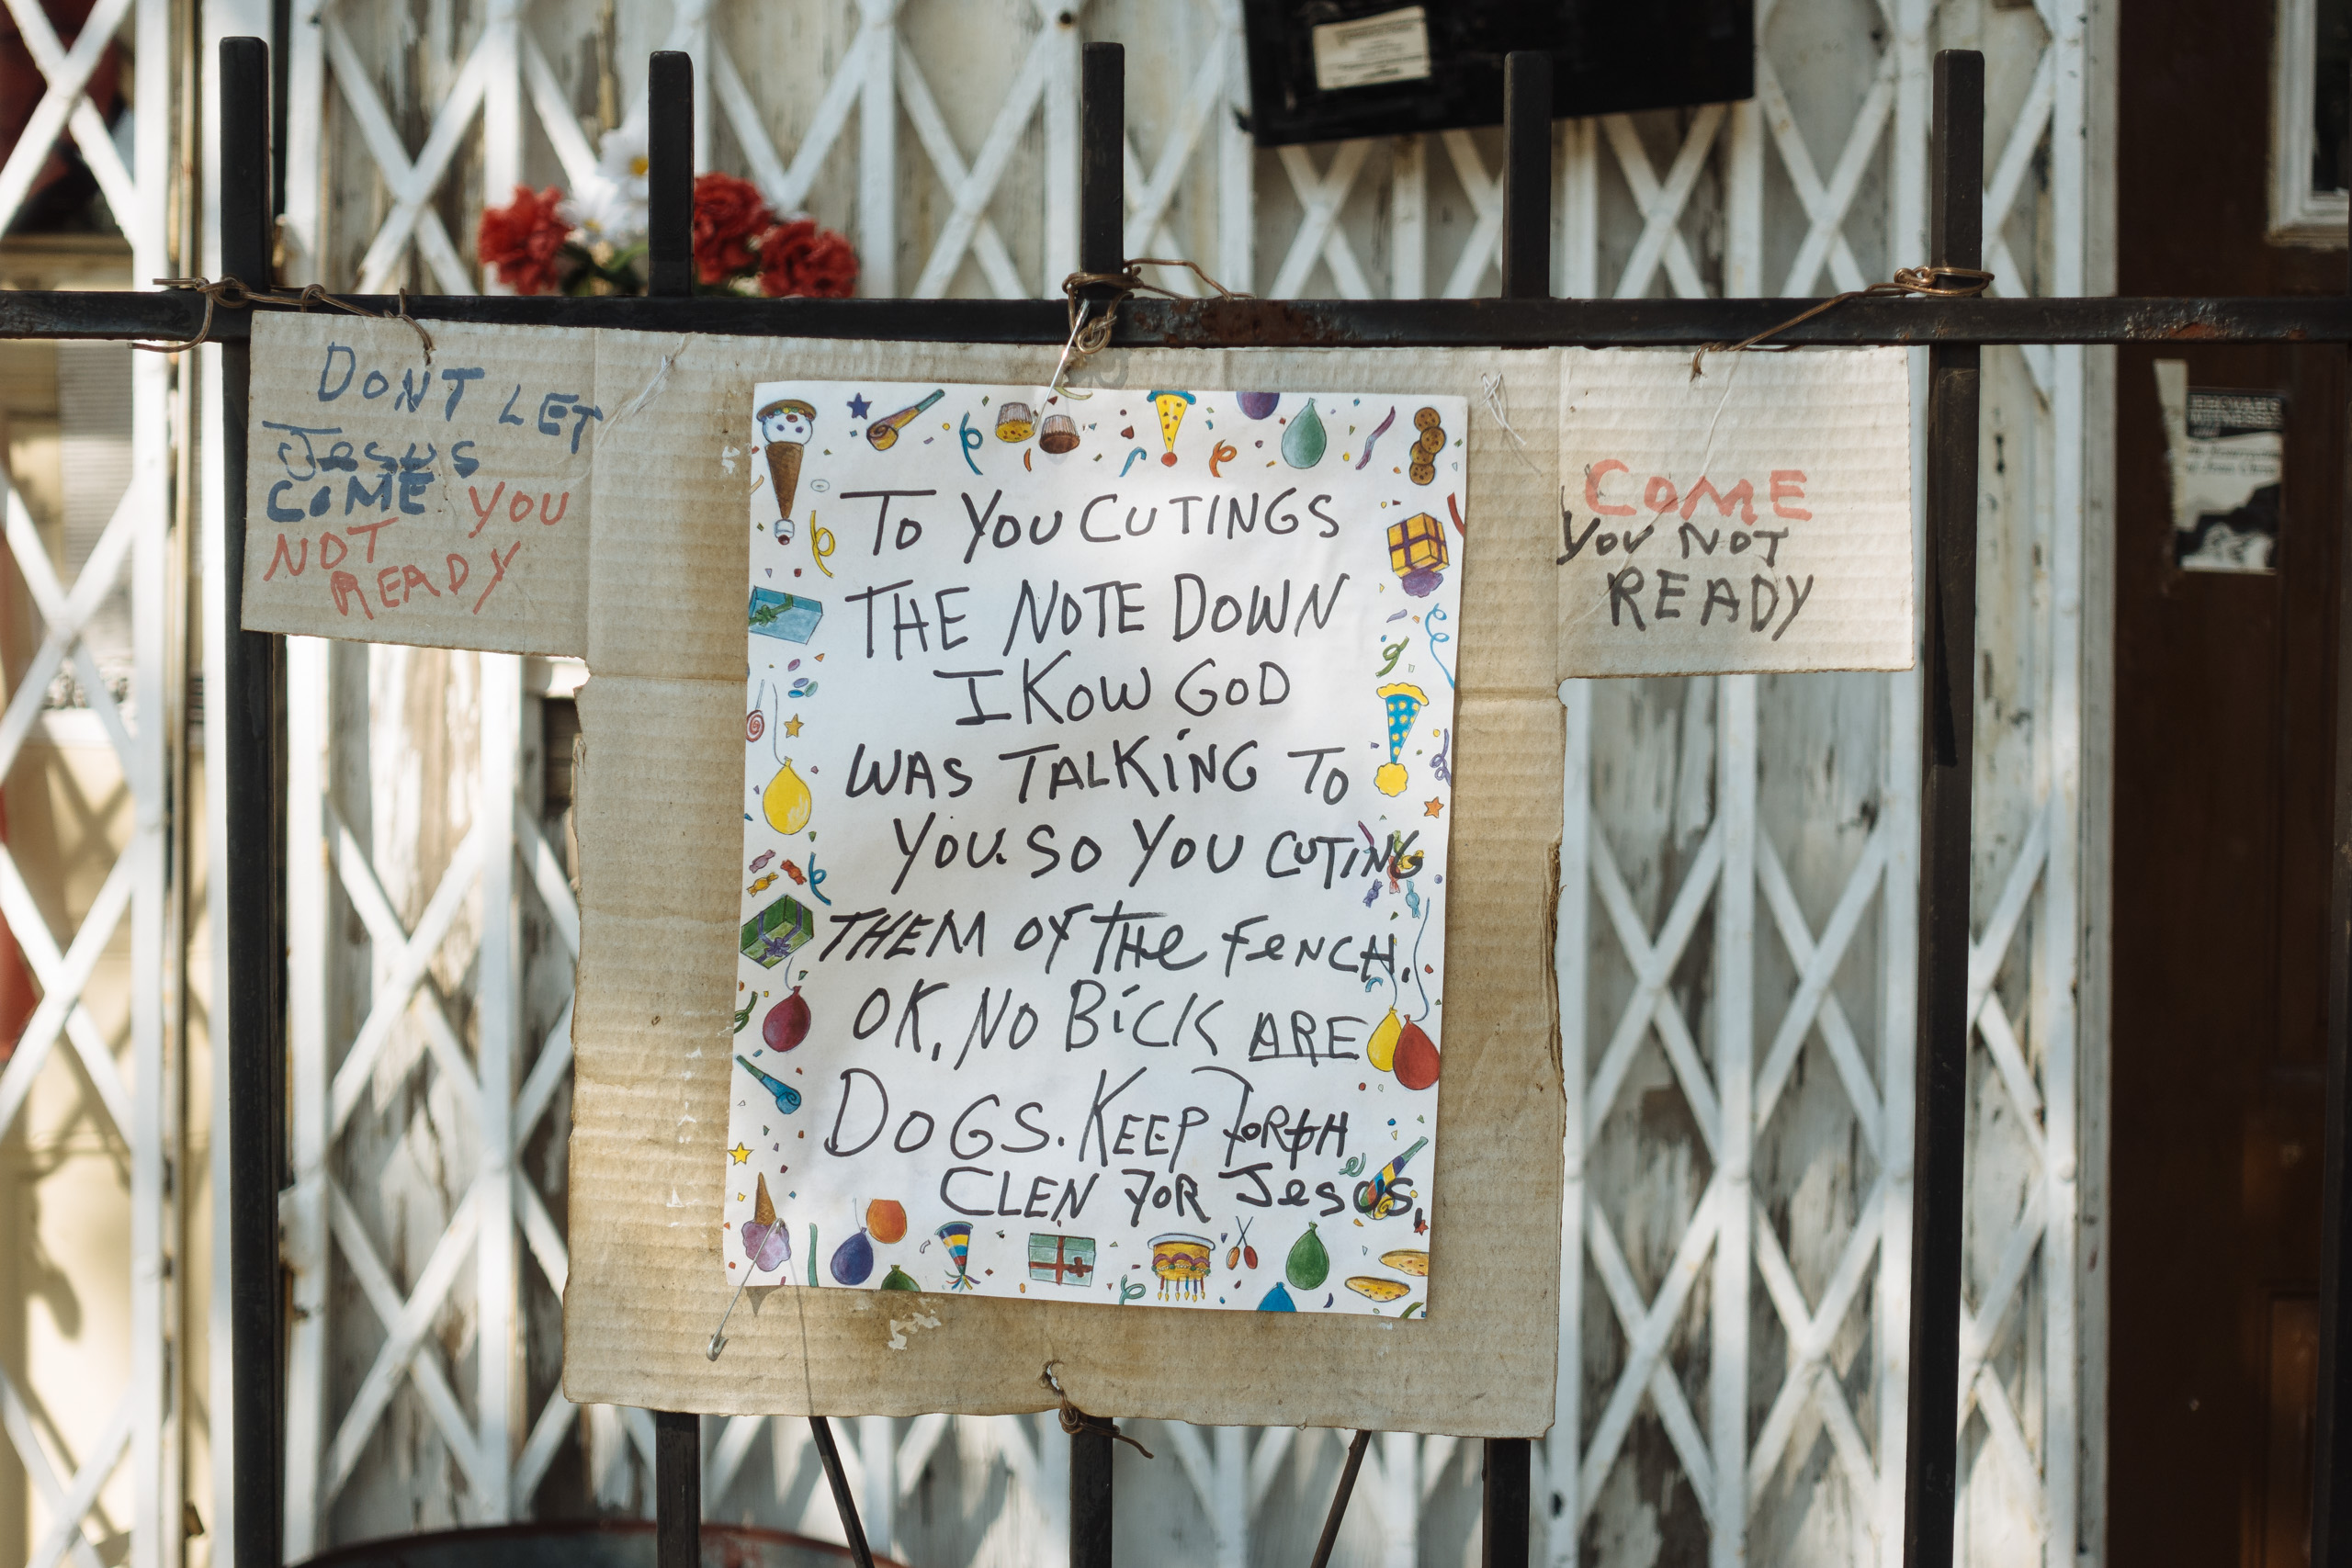 DONT LET
Jesus
COME YOU
NOT
READY
TO YOU CUTINGS
THE NOTE DOWN
I KOW GOD
WAS TALKING TO
YOU. SO YOU CUTING
THEM OF THE FENCH.
OK, NO BICK ARE
DOGS. KEEP FORTH
CLEN FOR Jesus,
COME
YOU NOT
READY